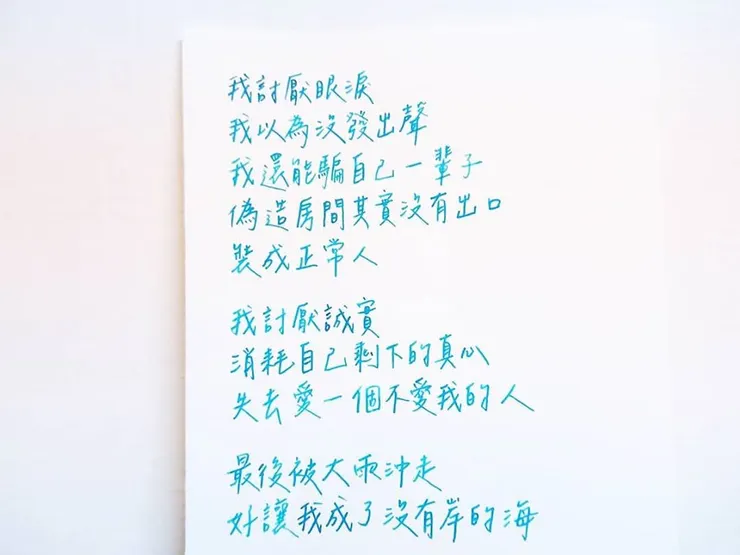 我討厭眼淚
我以為沒發出聲
我還能騙自己一輩子
偽造房間其實沒有出口
裝成正常人
我討厭誠實
消耗自己剩下的真心
失去愛一個不愛我的人
最後被大雨沖走
好讓我成了沒有岸的海